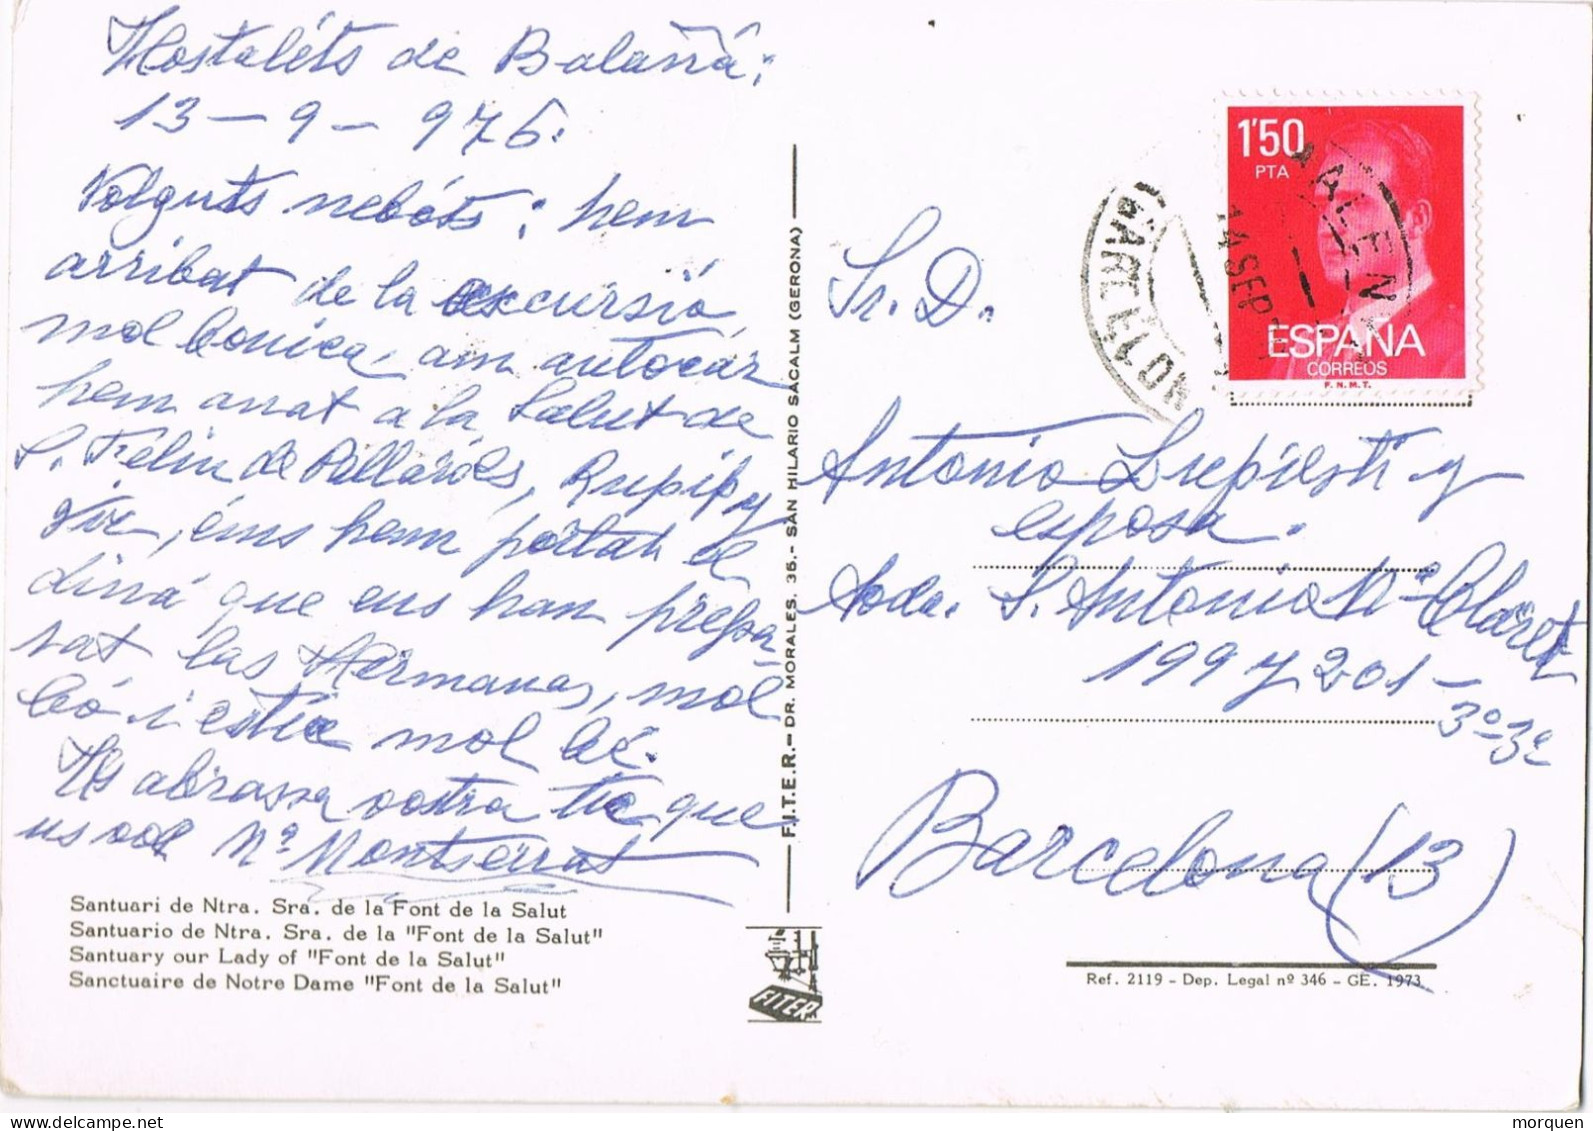 Hostaléts de Balañá;
13-9-976.
Volguts nebóts; hem
arribat de la excursió,
mol bonica, am autocár
hem anat a la Salut de
S. Feliu de Pallaróls, Rupit y
Vic, éns hem portat el
diná que ens han prepa-
rat las Hermanas, mol
bó i estic mol bé.
Us abrassa vostra tia que
us vol Mª Montserrat
Santuari de Ntra. Sra. de la Font de la Salut
Santuario de Ntra. Sra. de la "Font de la Salut"
Santuary our Lady of "Font de la Salut"
Sanctuaire de Notre Dame "Font de la Salut"
F.I.T.E.R.- DR. MORALES, 35.- SAN HILARIO SACALM (GERONA)
FITER
1'50
PTA
ESPAÑA
CORREOS
F.N.M.T.
14 SEP
Sr. D.
Antonio y
esposa.
Avda. S. Antonio Mª Claret
199 y 201-
3º-3ª
Barcelona (13)
Ref. 2119 - Dep. Legal nº 346 - GE. 1973
morquen